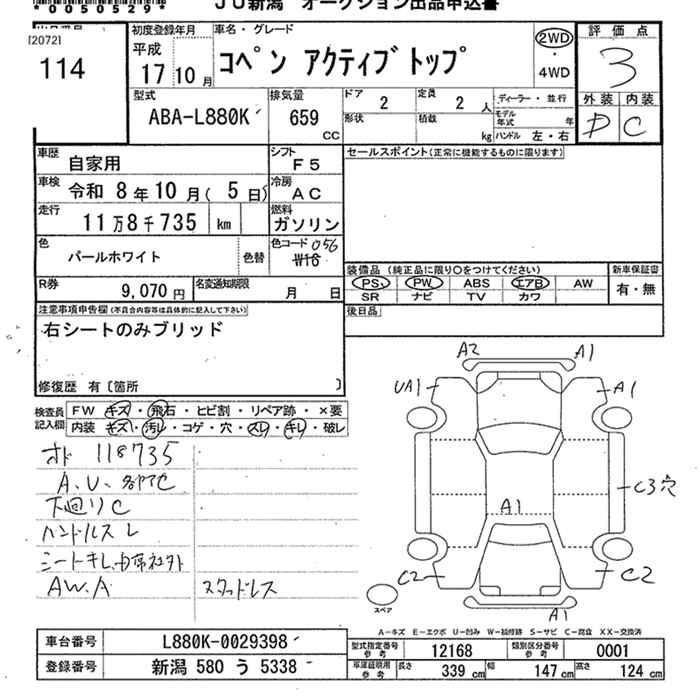 *0050529*
JU新潟 オークション出品申込書
120721
114
初度登録年月
平成
17年10月
車名・グレード
コペン アクティブトップ
2WD
・
4WD
評価点
3
外装 内装
D C
型式
ABA-L880K
排気量
659 CC
ドア
2
定員
2人
形状
積載
kg
ディーラー・並行
モデル年式 年
ハンドル 左・右
車歴
自家用
シフト
F5
車検
令和 8年10月( 5日)
冷房
AC
走行
11万8千735 km
燃料
ガソリン
色
パールホワイト
色替
色コード 056
W16
R券
9,070円
名変通知期限
月 日
セールスポイント(正常に機能するものに限ります)
装備品(純正品に限り○をつけてください)
PS PW ABS エアB AW
SR ナビ TV カワ
新車保証書
有・無
後日品
注意事項申告欄(不具合内容等は具体的に記入して下さい)
右シートのみブリッド
修復歴 有〔箇所 〕
検査員記入欄
FW キズ・飛石・ヒビ割・リペア跡・×要
内装 キズ・汚レ・コゲ・穴・スレ・キレ・破レ
オド 118735
A.U.各所C
下廻りC
ハンドルスレ
シートキレ.
AW.A
スタッドレス
A2 A1
UA1 A1
C3穴
A1
C2 C2
A1
スペア
A−キズ E−エクボ U−凹み W−補修跡 S−サビ C−腐食 XX−交換済
車台番号
L880K-0029398
登録番号
新潟 580 う 5338
型式指定番号
参考
12168
類別区分番号
参考
0001
車庫証明用
参考
長さ 339 cm
幅 147 cm
高さ 124 cm